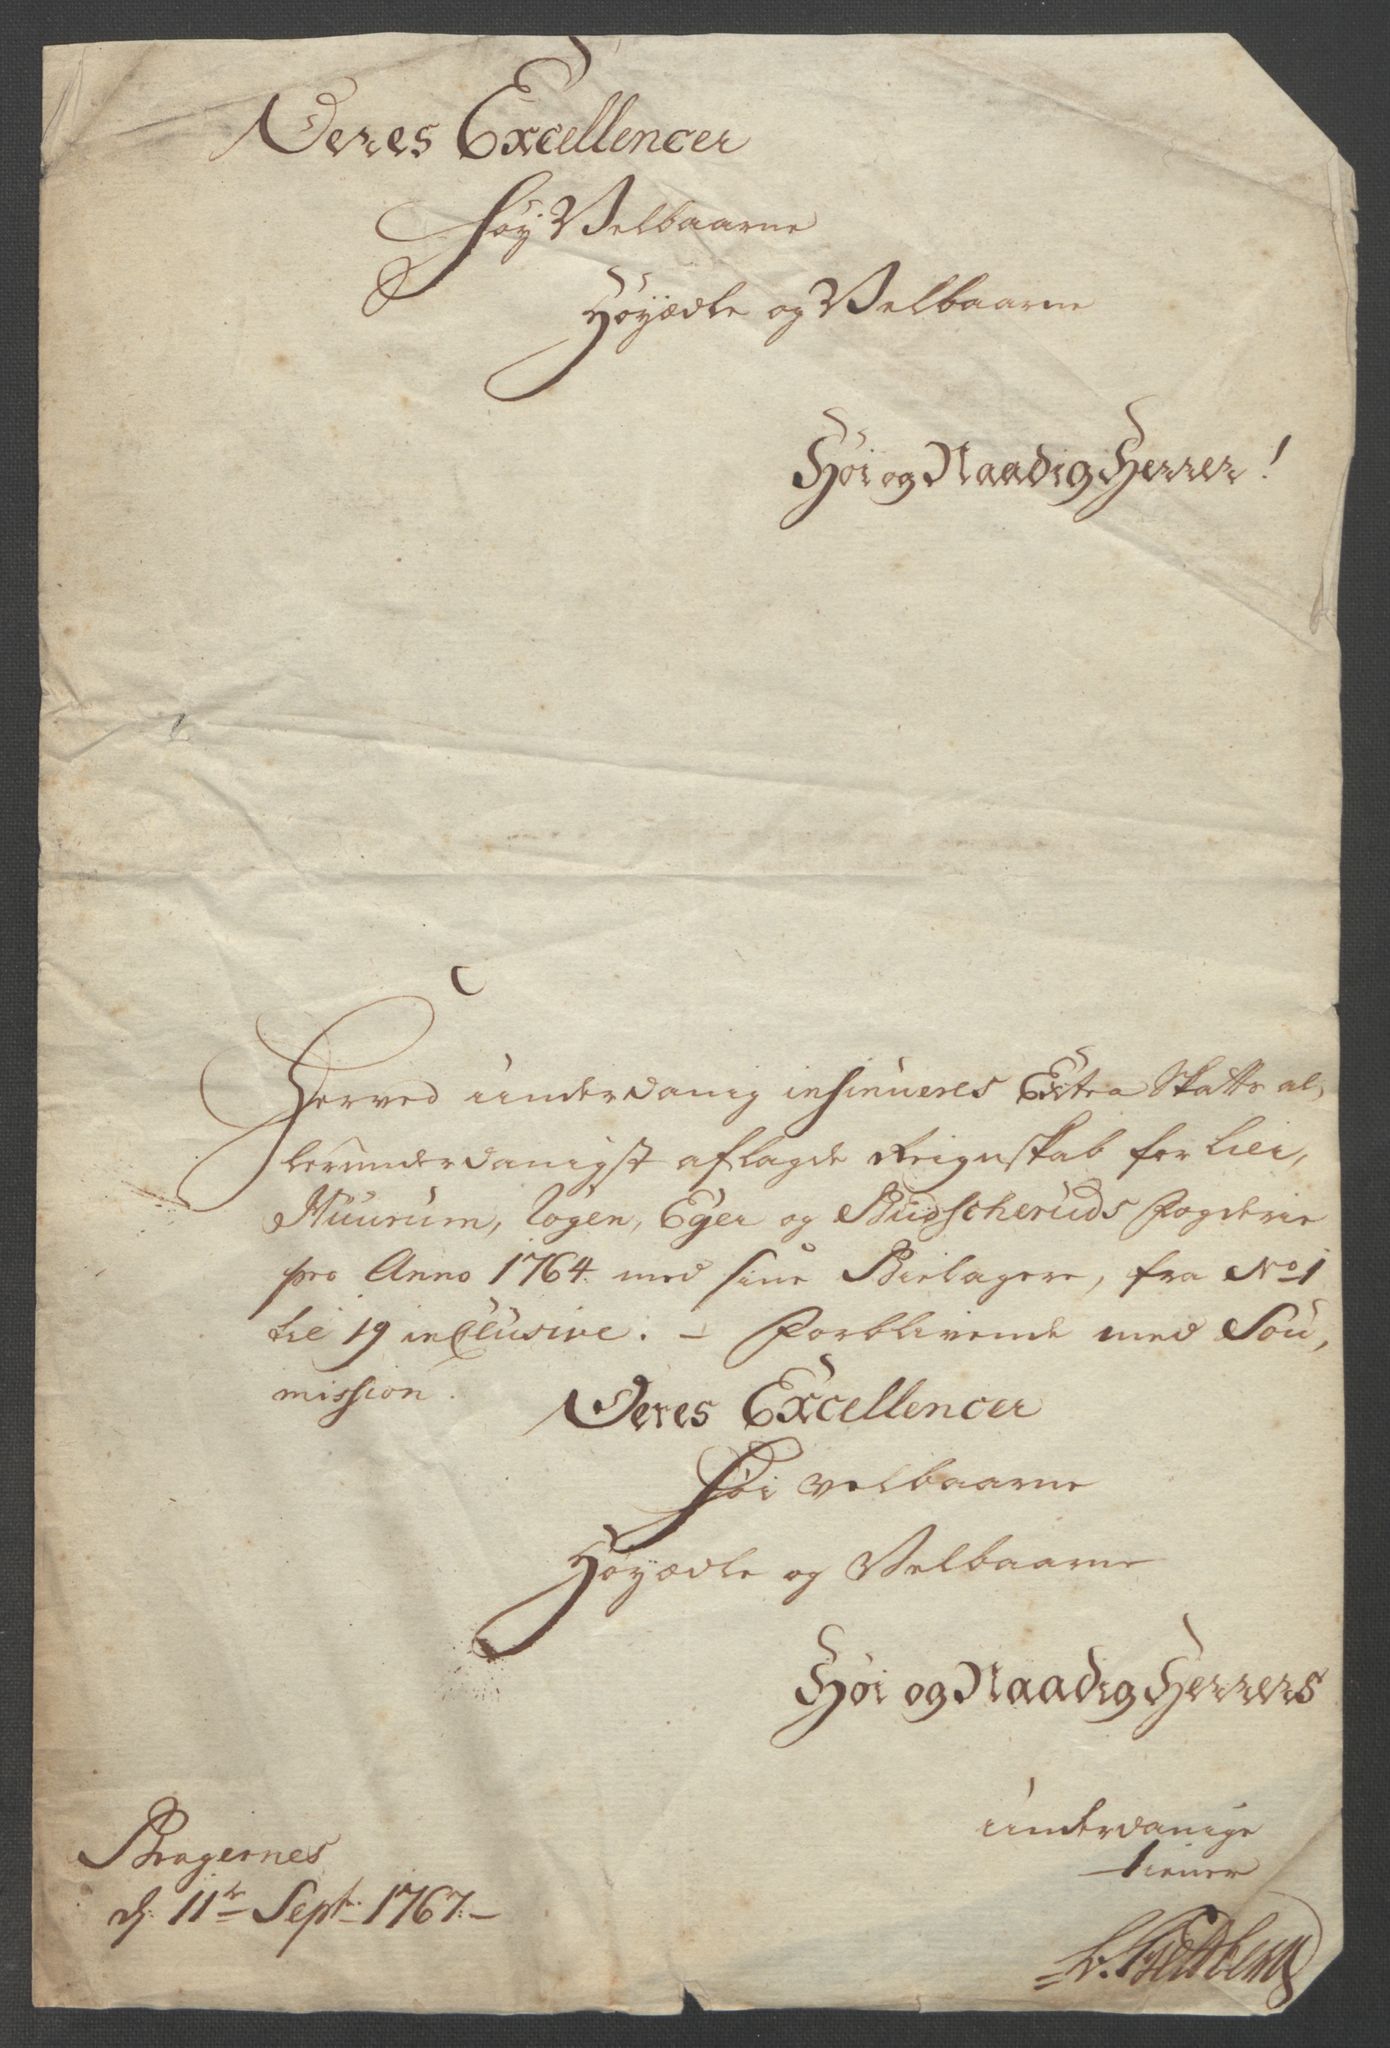 Deres Excellencer
Høy Velbaarne
Høyædle og Velbaarne
Høi og Naadig Herrer!
Herved underdanig insinueres Extra Skatts al,
lerunderdanigst aflagde Reignskab for Lier,
Huurum, Rogen, Eger og Buscheruds Fogderie
pro Anno 1764. med sine Bielagere, fra No 1
til 19 inclusive. – Forblivende med Sou,
mission.
Deres Excellencer
Høi velbaarne
Høyædle og Velbaarne
Høi og Naadig Herrers
underdanige
tiener
Bragernes
d. 11te Sept. 1767.